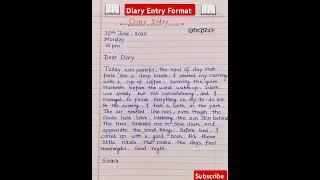 Diary Entry Format
Diary Entry
10th June, 2025
Monday
10 pm
Dear Diary
Today was peaceful, the kind of day that
feels like a deep breath. I started my morning
with a cup of coffee, savoring the quiet
moments before the world wakes up. Work
was steady but not overwhelming, and I
managed to finish everything on my to-do list
in the evening, I took a walk in the park.
The air smelled like rain, even though the
clouds held back. Watching the sun dip behind
the trees reminded me to slow down and
appreciate the small things. Before bed, I
curled up with a good book. It's these
little rituals that make the days feel
meaningful. Good night.
Saara
Subscribe